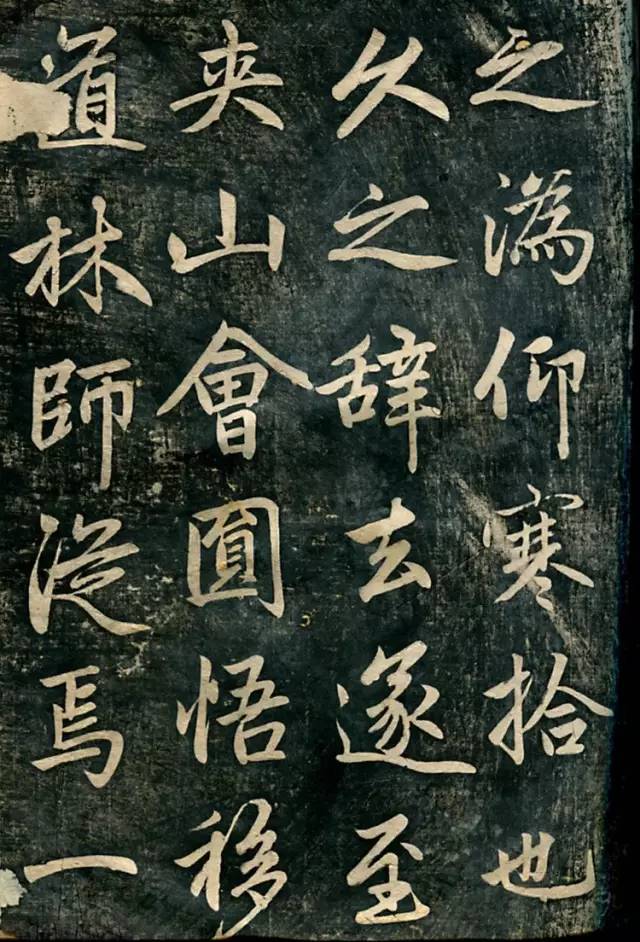 之潙仰寒拾也
久之辞去遂至
夾山會圓悟移
道林師從焉一